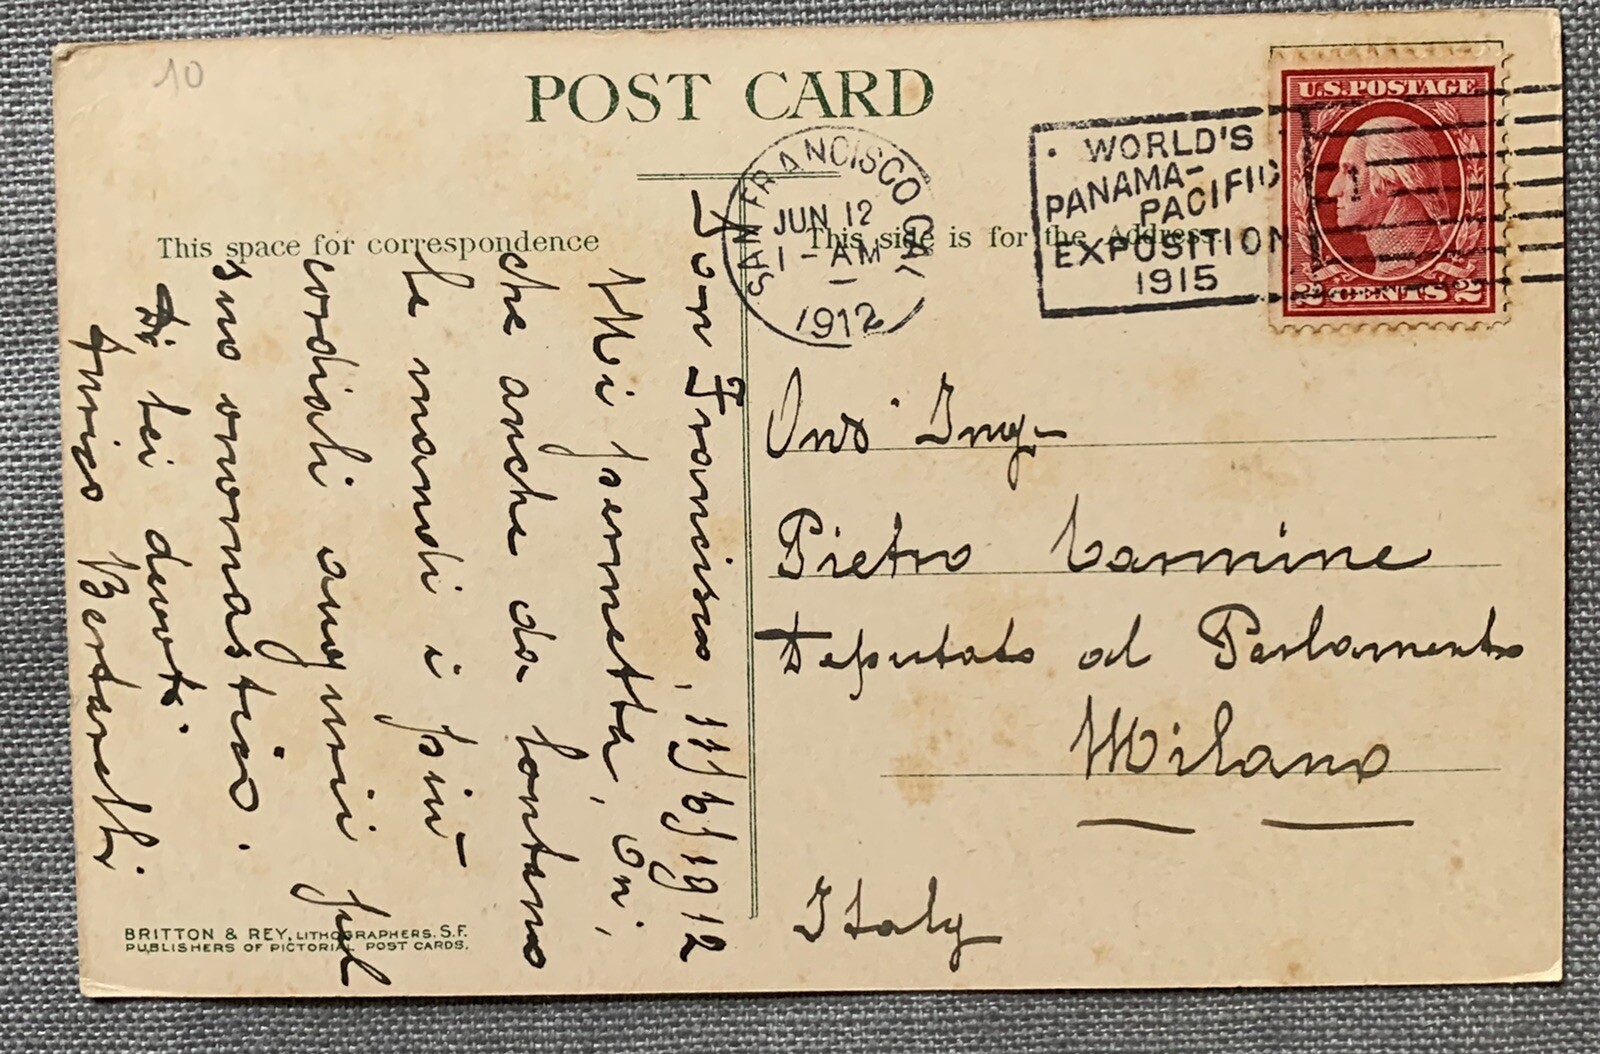 10
POST CARD
This space for correspondence
This side is for the Address
SAN FRANCISCO CAL
JUN 12
1-AM
1912
WORLD'S
PANAMA-
PACIFIC
EXPOSITION
1915
U.S.POSTAGE
2 CENTS 2
San Francisco, 11/6/1912
Mi permetta, On;
che anche da lontano
le mandi i più
cordiali auguri pel
suo onomastico.
Di lei devoti
Bertarelli
Ono Ing.
Pietro Carmine
Deputato al Parlamento
Milano
Italy
BRITTON & REY, LITHOGRAPHERS, S.F.
PUBLISHERS OF PICTORIAL POST CARDS.